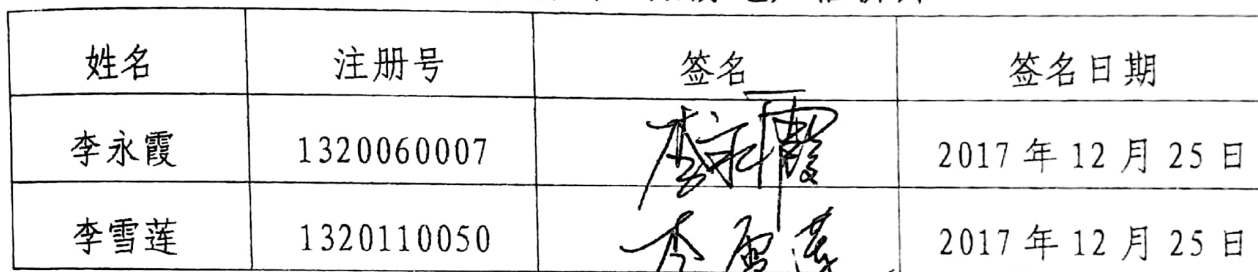 姓名 注册号 签名 签名日期
李永霞 1320060007 李永霞 2017年12月25日
李雪莲 1320110050 李雪莲 2017年12月25日